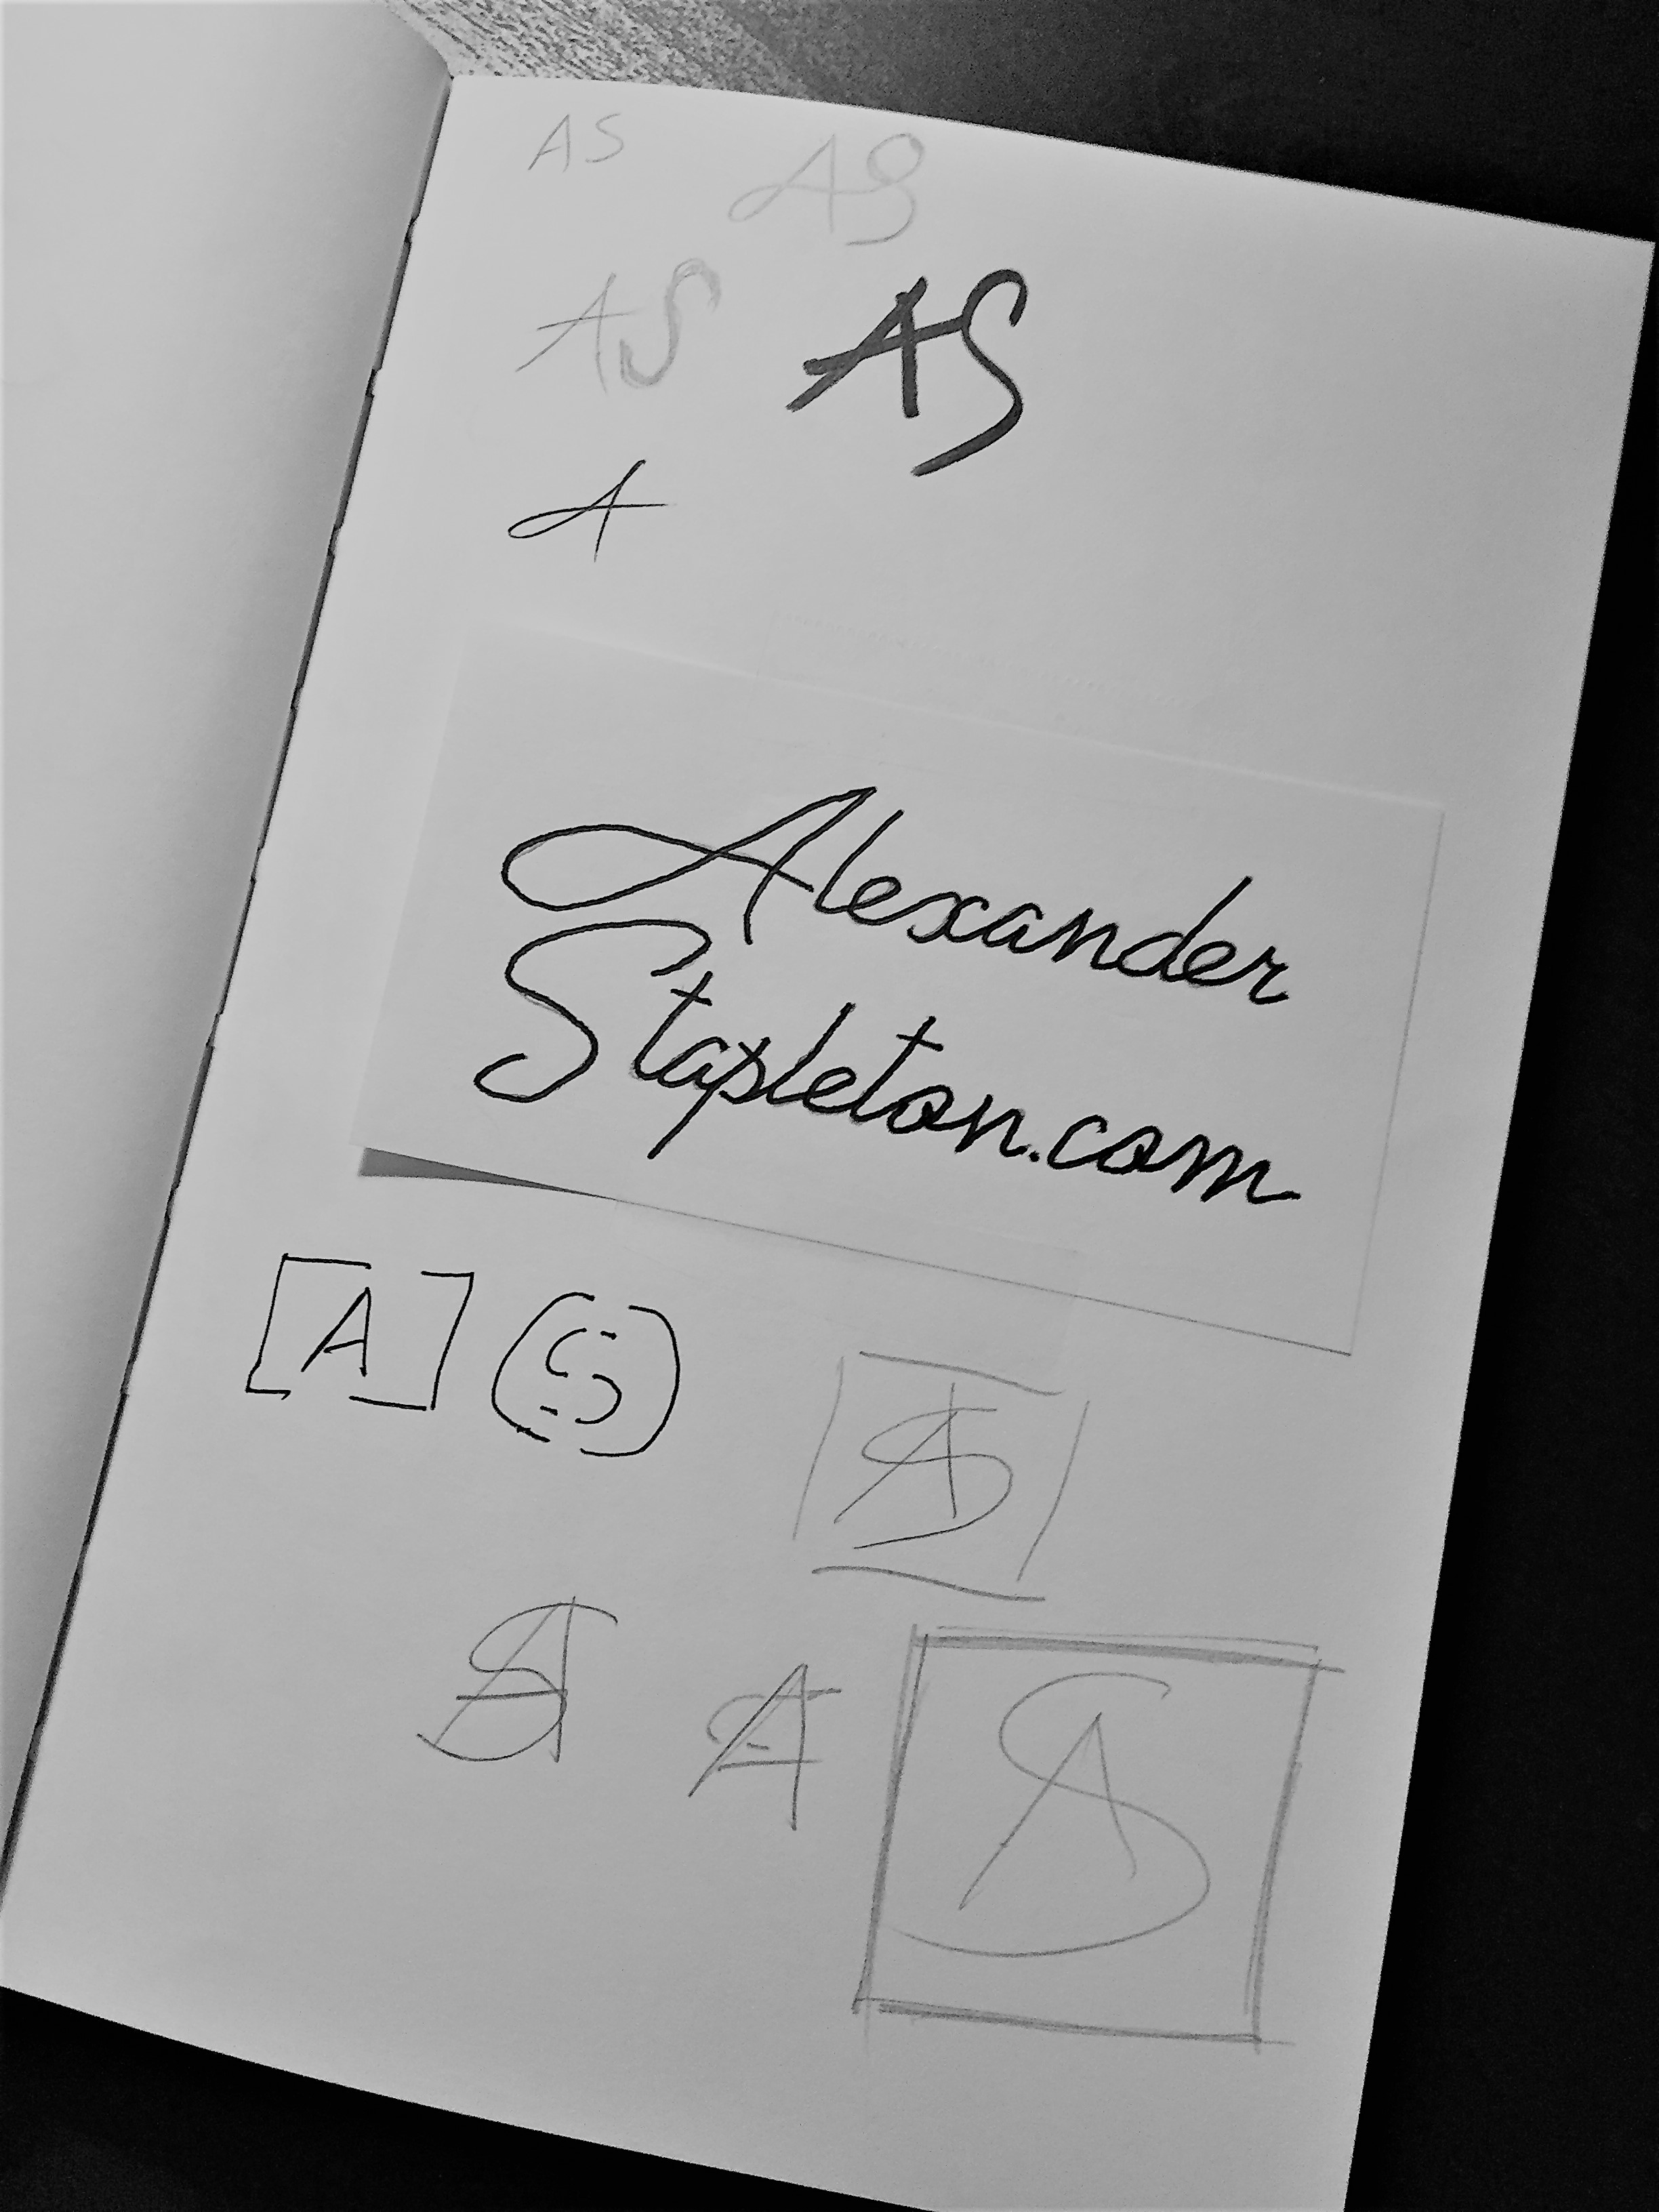 AS
AS
AS
AS
A
Alexander
Stapleton.com
[A] (S)
AS
AS
A
AS